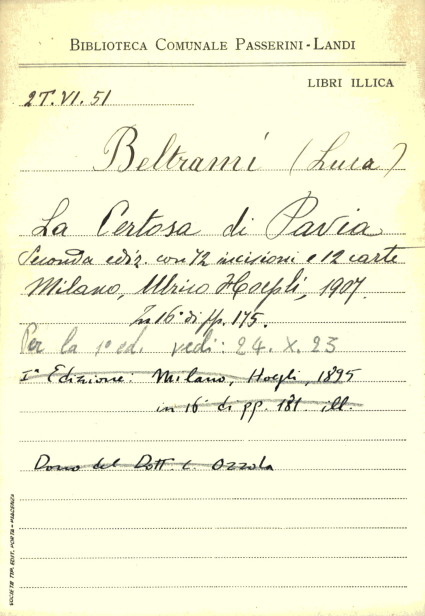 BIBLIOTECA COMUNALE PASSERINI-LANDI
LIBRI ILLICA
2T.VI.51
Beltrami (Luca)
La Certosa di Pavia
Seconda ediz. con 72 incisioni e 12 carte
Milano, Ulrico Hoepli, 1907.
In 16° di pp. 175.
Per la 1ª ed. vedi: 24. X. 23
Iª Edizione: Milano, Hoepli, 1895
in 16° di pp. 181 ill.
Dono del Dott. L. Ozzola
SOCIETÀ TIP. EDIT. PORTA - PIACENZA